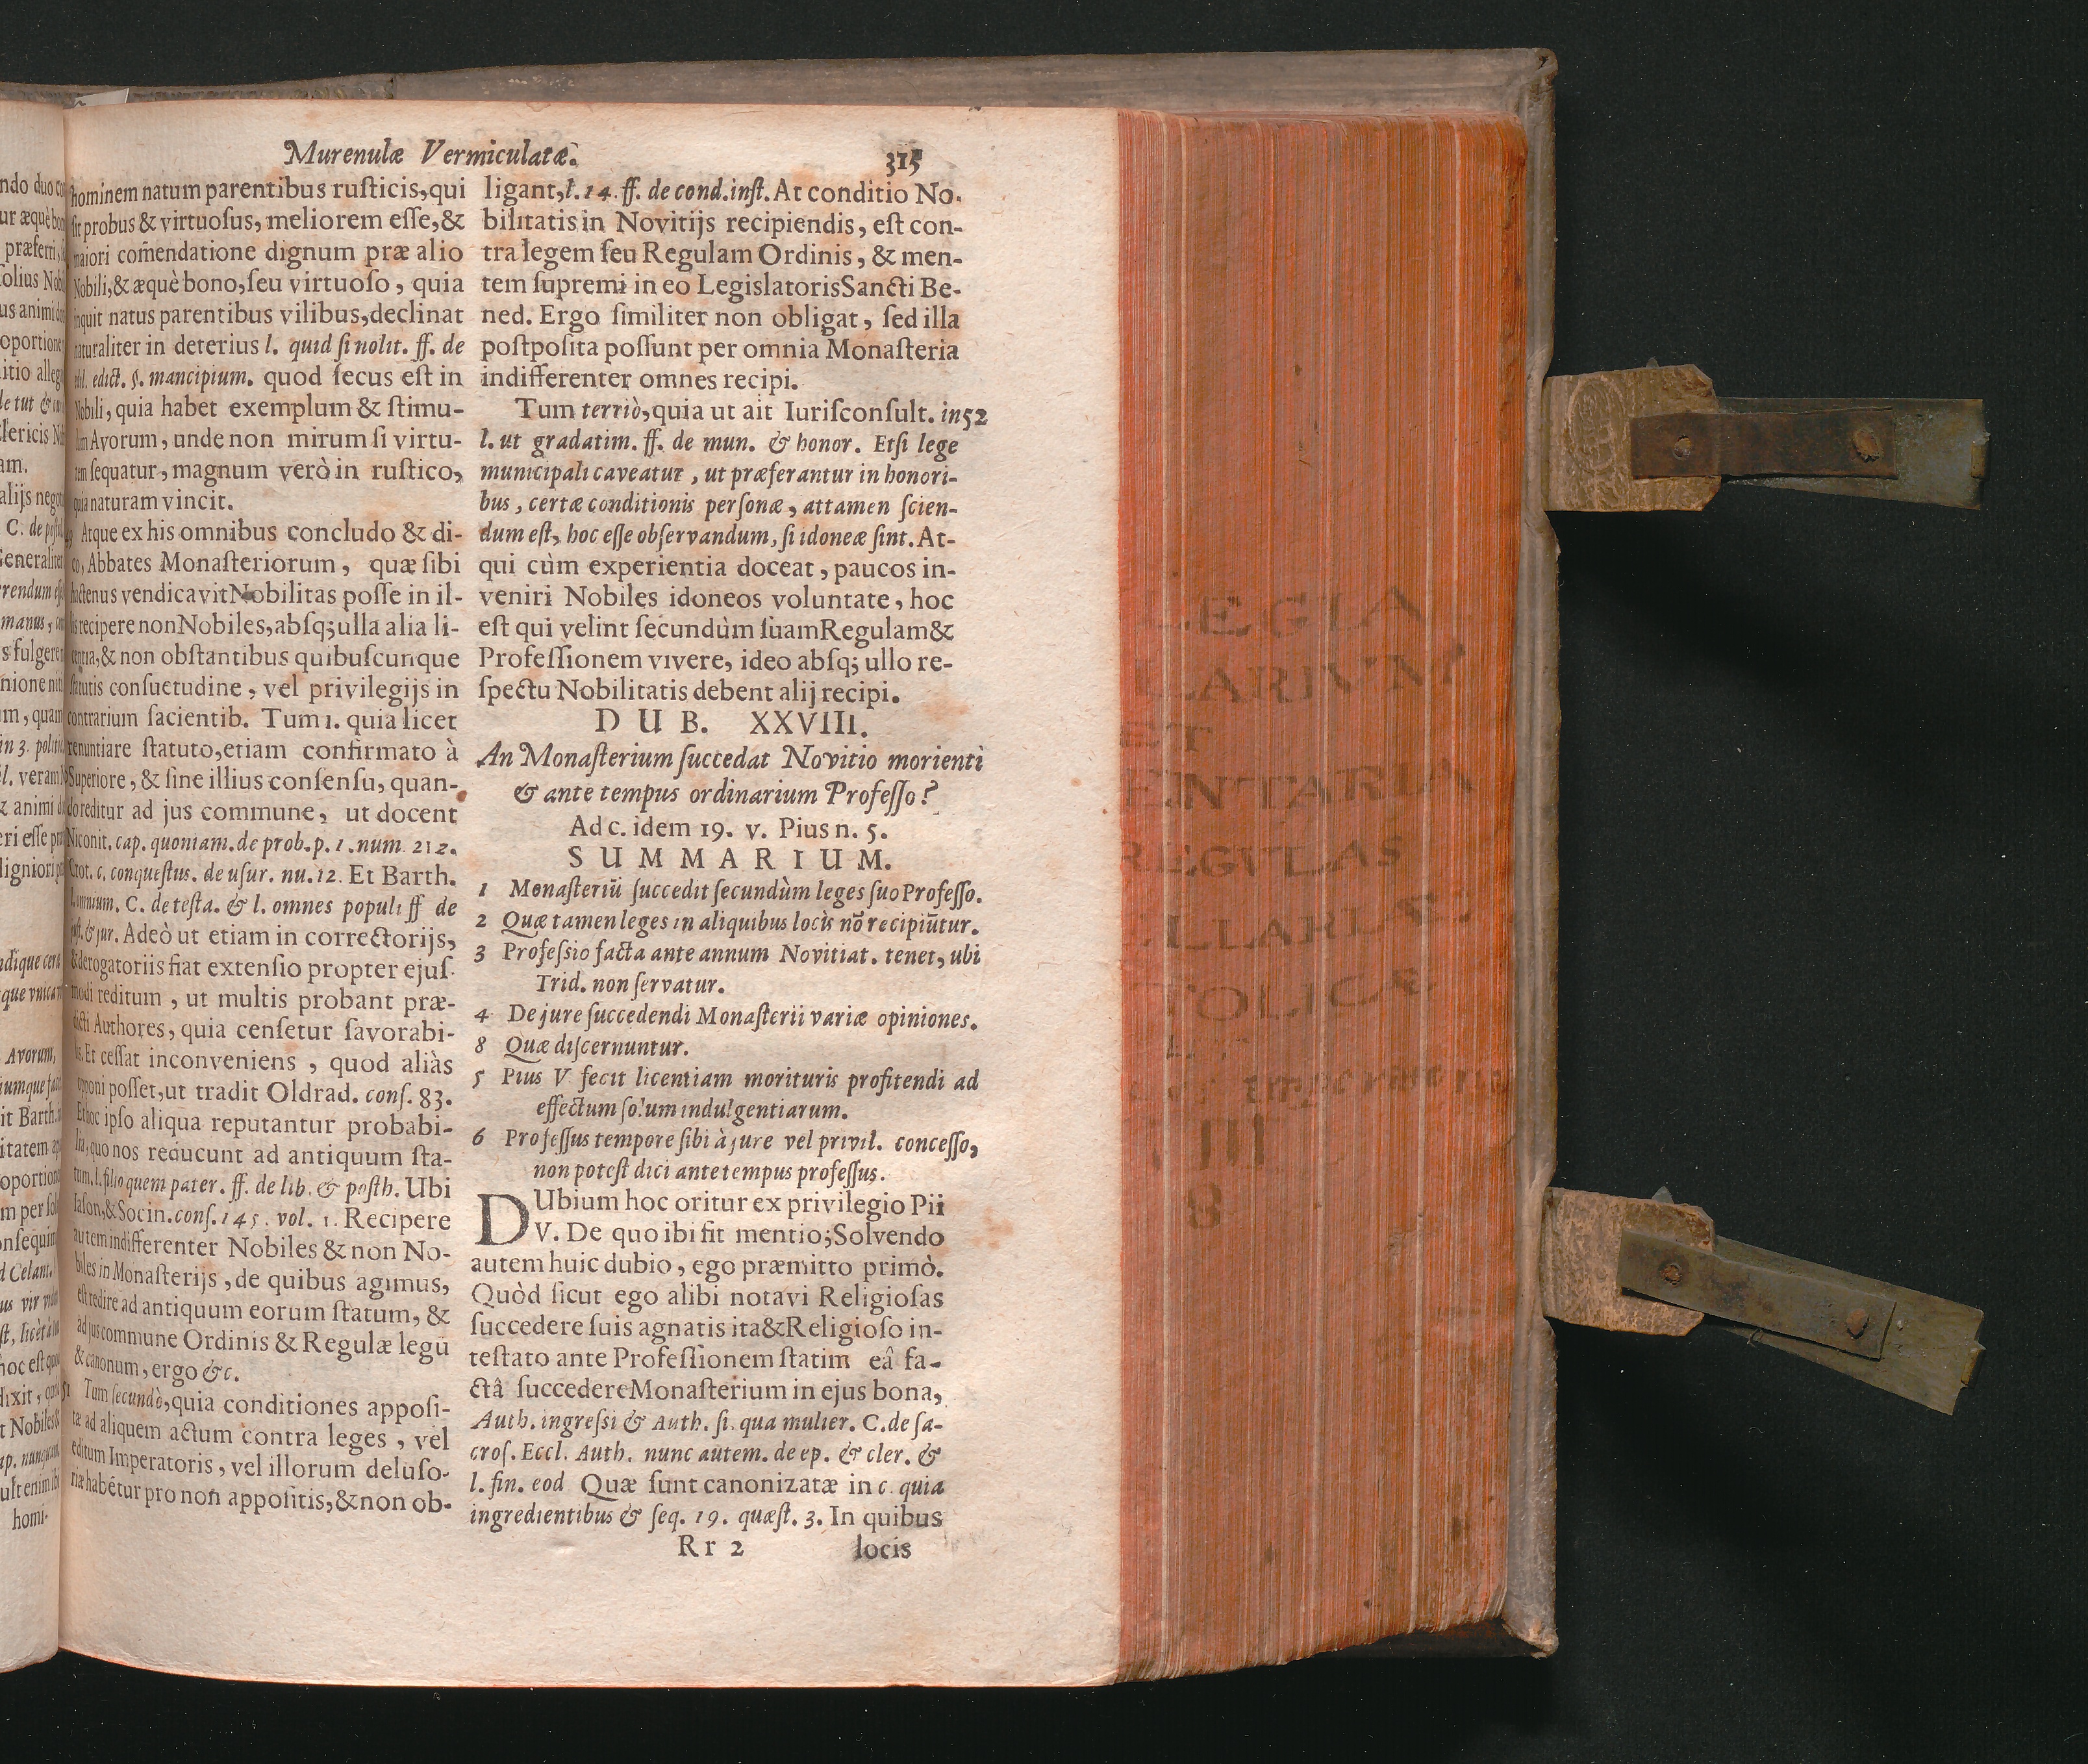 Murenulæ Vermiculatæ.
315
hominem natum parentibus rusticis,qui
sit probus & virtuosus, meliorem esse,&
maiori com̄endatione dignum præ alio
Nobili,& æquè bono,seu virtuoso, quia
inquit natus parentibus vilibus,declinat
naturaliter in deterius l. quid si nolit. ff. de
ædil. edict. §. mancipium. quod secus est in
Nobili, quia habet exemplum & stimu-
lum Avorum, unde non mirum si virtu-
tem sequatur, magnum verò in rustico,
quia naturam vincit.
Atque ex his omnibus concludo & di-
co, Abbates Monasteriorum, quæ sibi
hactenus vendicavit Nobilitas posse in il-
lis recipere non Nobiles, absq; ulla alia li-
centia,& non obstantibus quibuscunque
statutis consuetudine, vel privilegijs in
contrarium facientib. Tum 1. quia licet
renuntiare statuto,etiam confirmato à
Superiore, & sine illius consensu, quan-
do reditur ad jus commune, ut docent
Niconit. cap. quoniam. de prob. p. 1. num. 212.
Crot. c. conquestus. de usur. nu. 12. Et Barth.
l. omnium. C. de testa. & l. omnes populi ff de
just. & jur. Adeò ut etiam in correctorijs,
& derogatoriis fiat extensio propter ejus-
modi reditum, ut multis probant præ-
dicti Authores, quia censetur favorabi-
lis. Et cessat inconveniens, quod aliàs
opponi posset, ut tradit Oldrad. cons. 83.
Et hoc ipso aliqua reputantur probabi-
lia, quo nos reducunt ad antiquum sta-
tum. l. filio quem pater. ff. de lib. & posth. Ubi
Iason,& Socin. cons. 145. vol. 1. Recipere
autem indifferenter Nobiles & non No-
biles in Monasterijs, de quibus agimus,
est redire ad antiquum eorum statum, &
ad jus commune Ordinis & Regulæ legū
& canonum, ergo &c.
51 Tum secundò, quia conditiones apposi-
tæ ad aliquem actum contra leges, vel
editum Imperatoris, vel illorum deluso-
riæ habētur pro non appositis,& non ob-
ligant, l. 14. ff. de cond. inst. At conditio No-
bilitatis in Novitijs recipiendis, est con-
tra legem seu Regulam Ordinis, & men-
tem supremi in eo Legislatoris Sancti Be-
ned. Ergo similiter non obligat, sed illa
postposita possunt per omnia Monasteria
indifferenter omnes recipi.
Tum terriò, quia ut ait Iurisconsult. in 52
l. ut gradatim. ff. de mun. & honor. Etsi lege
municipali caveatur, ut præferantur in honori-
bus, certæ conditionis personæ, attamen scien-
dum est, hoc esse observandum, si idoneæ sint. At-
qui cùm experientia doceat, paucos in-
veniri Nobiles idoneos voluntate, hoc
est qui velint secundùm suam Regulam &
Professionem vivere, ideo absq; ullo re-
spectu Nobilitatis debent alij recipi.
DUB. XXVIII.
An Monasterium succedat Novitio morienti
& ante tempus ordinarium Professo?
Ad c. idem 19. v. Pius n. 5.
SUMMARIUM.
1 Monasteriū succedit secundùm leges suo Professo.
2 Quæ tamen leges in aliquibus locis nō recipiūtur.
3 Professio facta ante annum Novitiat. tenet, ubi
Trid. non servatur.
4 De jure succedendi Monasterii variæ opiniones.
8 Quæ discernuntur.
5 Pius V fecit licentiam morituris profitendi ad
effectum solum indulgentiarum.
6 Professus tempore sibi à jure vel privil. concesso,
non potest dici ante tempus professus.
DUbium hoc oritur ex privilegio Pii
V. De quo ibi fit mentio; Solvendo
autem huic dubio, ego præmitto primò.
Quòd sicut ego alibi notavi Religiosas
succedere suis agnatis ita & Religioso in-
testato ante Professionem statim eâ fa-
ctâ succedere Monasterium in ejus bona,
Auth. ingressi & Auth. si qua mulier. C. de sa-
cros. Eccl. Auth. nunc autem. de ep. & cler. &
l. fin. eod Quæ sunt canonizatæ in c. quia
ingredientibus & seq. 19. quæst. 3. In quibus
Rr 2
locis
LEGIA
LARIVM
ET
ENTARIA
REGVLAS
LLARIÆ
TOLICÆ
III
8